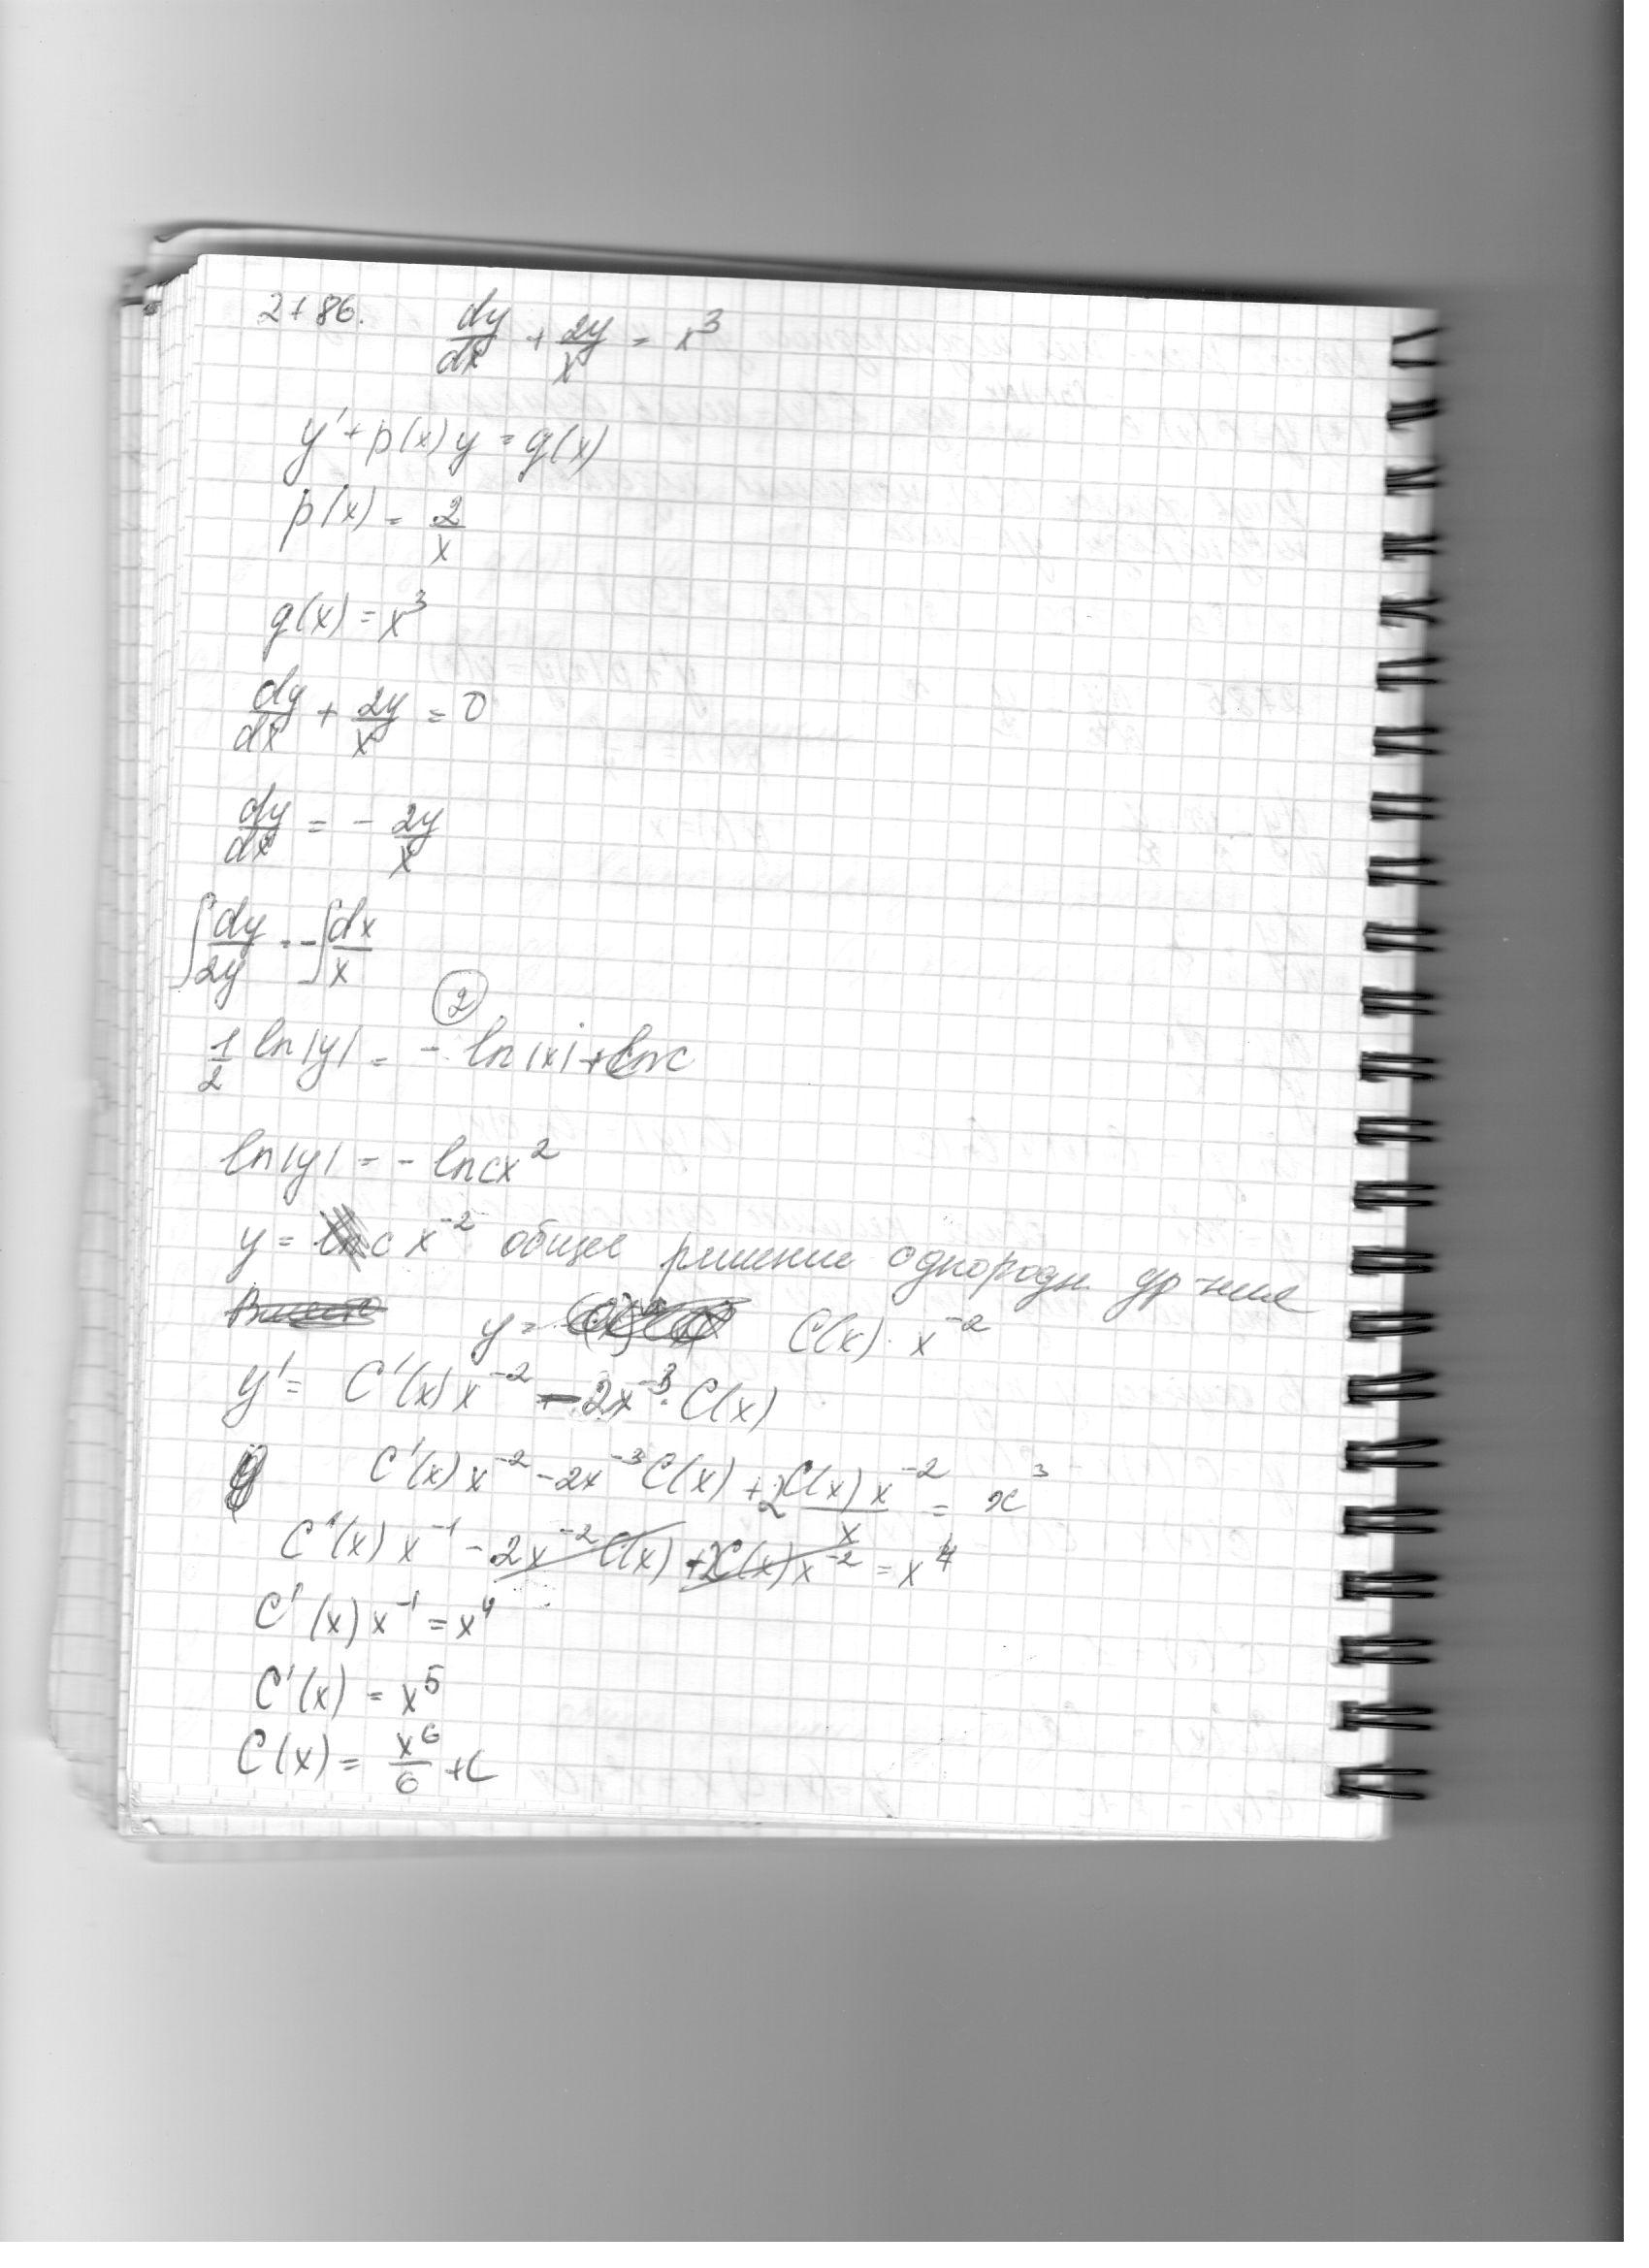 2786. dy/dx + 2y/x = x³
y' + p(x) y = g(x)
p(x) = 2/x
g(x) = x³
dy/dx + 2y/x = 0
dy/dx = - 2y/x
∫ dy/2y = -∫ dx/x
②
1/2 ln|y| = - ln|x| + lnc
ln|y| = - ln cx²
y = c x⁻² общее решение однородн. ур-ния
y = C(x) · x⁻²
y' = C'(x) x⁻² - 2x⁻³ · C(x)
C'(x) x⁻² - 2x⁻³ C(x) + 2C(x) x⁻²/x = x³
C'(x) x⁻¹ - 2x⁻² C(x) + 2C(x) x⁻² = x⁴
C'(x) x⁻¹ = x⁴
C'(x) = x⁵
C(x) = x⁶/6 + C